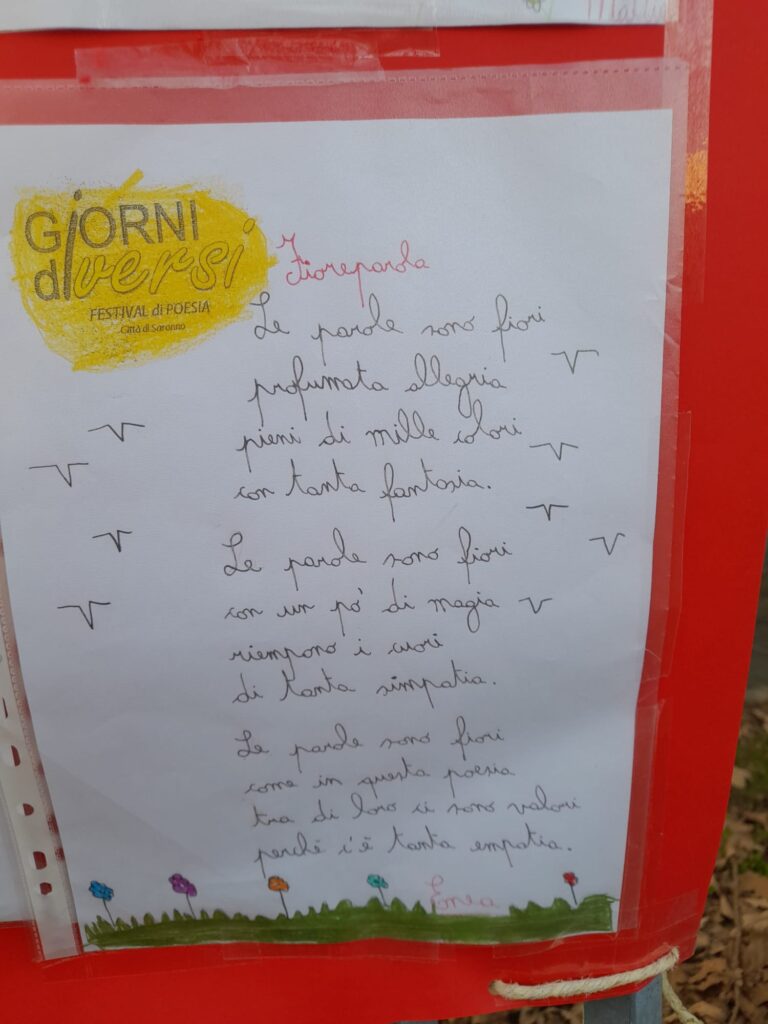 GiORNI
diversi
FESTIVAL di POESIA
Città di Saronno
Fioreparola
Le parole sono fiori
profumata allegria
pieni di mille colori
con tanta fantasia.
Le parole sono fiori
con un po' di magia
riempono i cuori
di tanta simpatia.
Le parole sono fiori
come in questa poesia
tra di loro ci sono valori
perchè c'è tanta empatia.
Enea